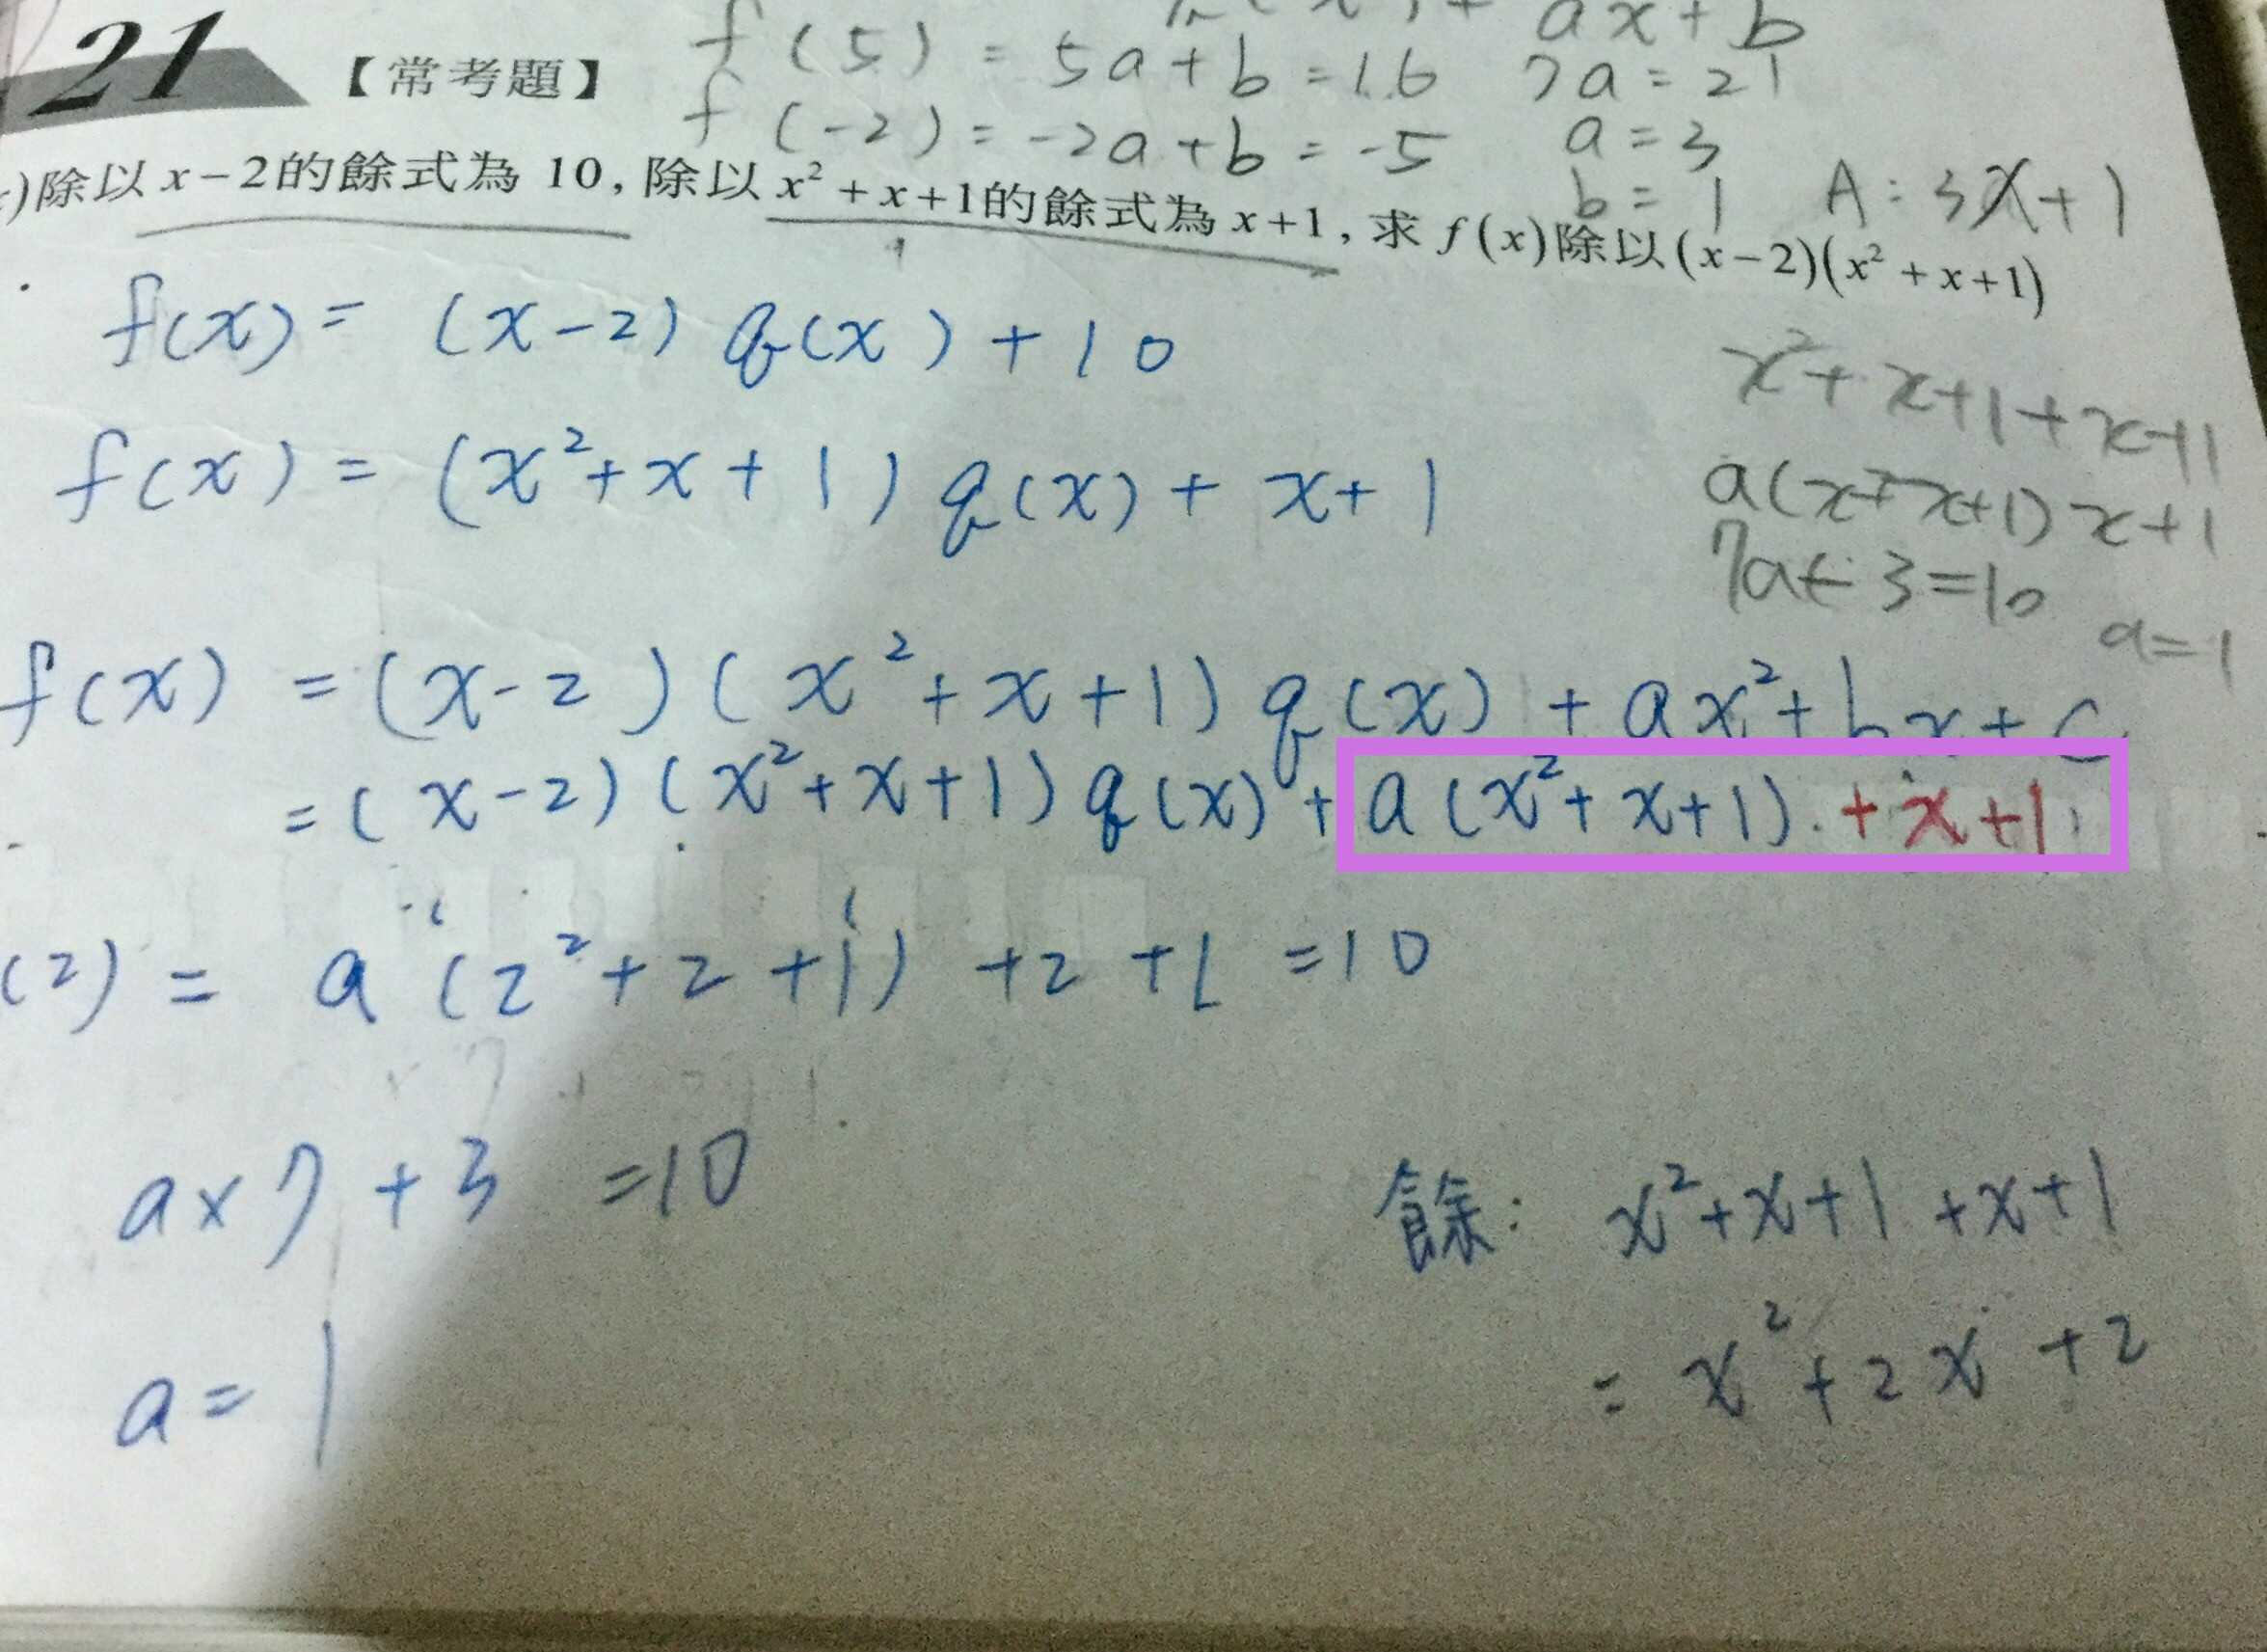 ax+b
21
【常考題】
f(5) = 5a+b=16 7a=21
f(-2) = -2a+b=-5 a=3
b=1 A:3x+1
)除以 x-2的餘式為 10, 除以 x²+x+1的餘式為 x+1, 求 f(x)除以(x-2)(x²+x+1)
f(x)= (x-2) q(x)+10
x²+x+1+x+1
f(x) = (x²+x+1) q(x)+x+1
a(x²+x+1)x+1
7a+3=10
a=1
f(x) =(x-2)(x²+x+1) q(x) + ax²+bx+c
=(x-2)(x²+x+1) q(x)+a(x²+x+1)+x+1
(2) = a(2²+2+1)+2+1=10
a×7+3=10
餘: x²+x+1+x+1
= x²+2x+2
a=1